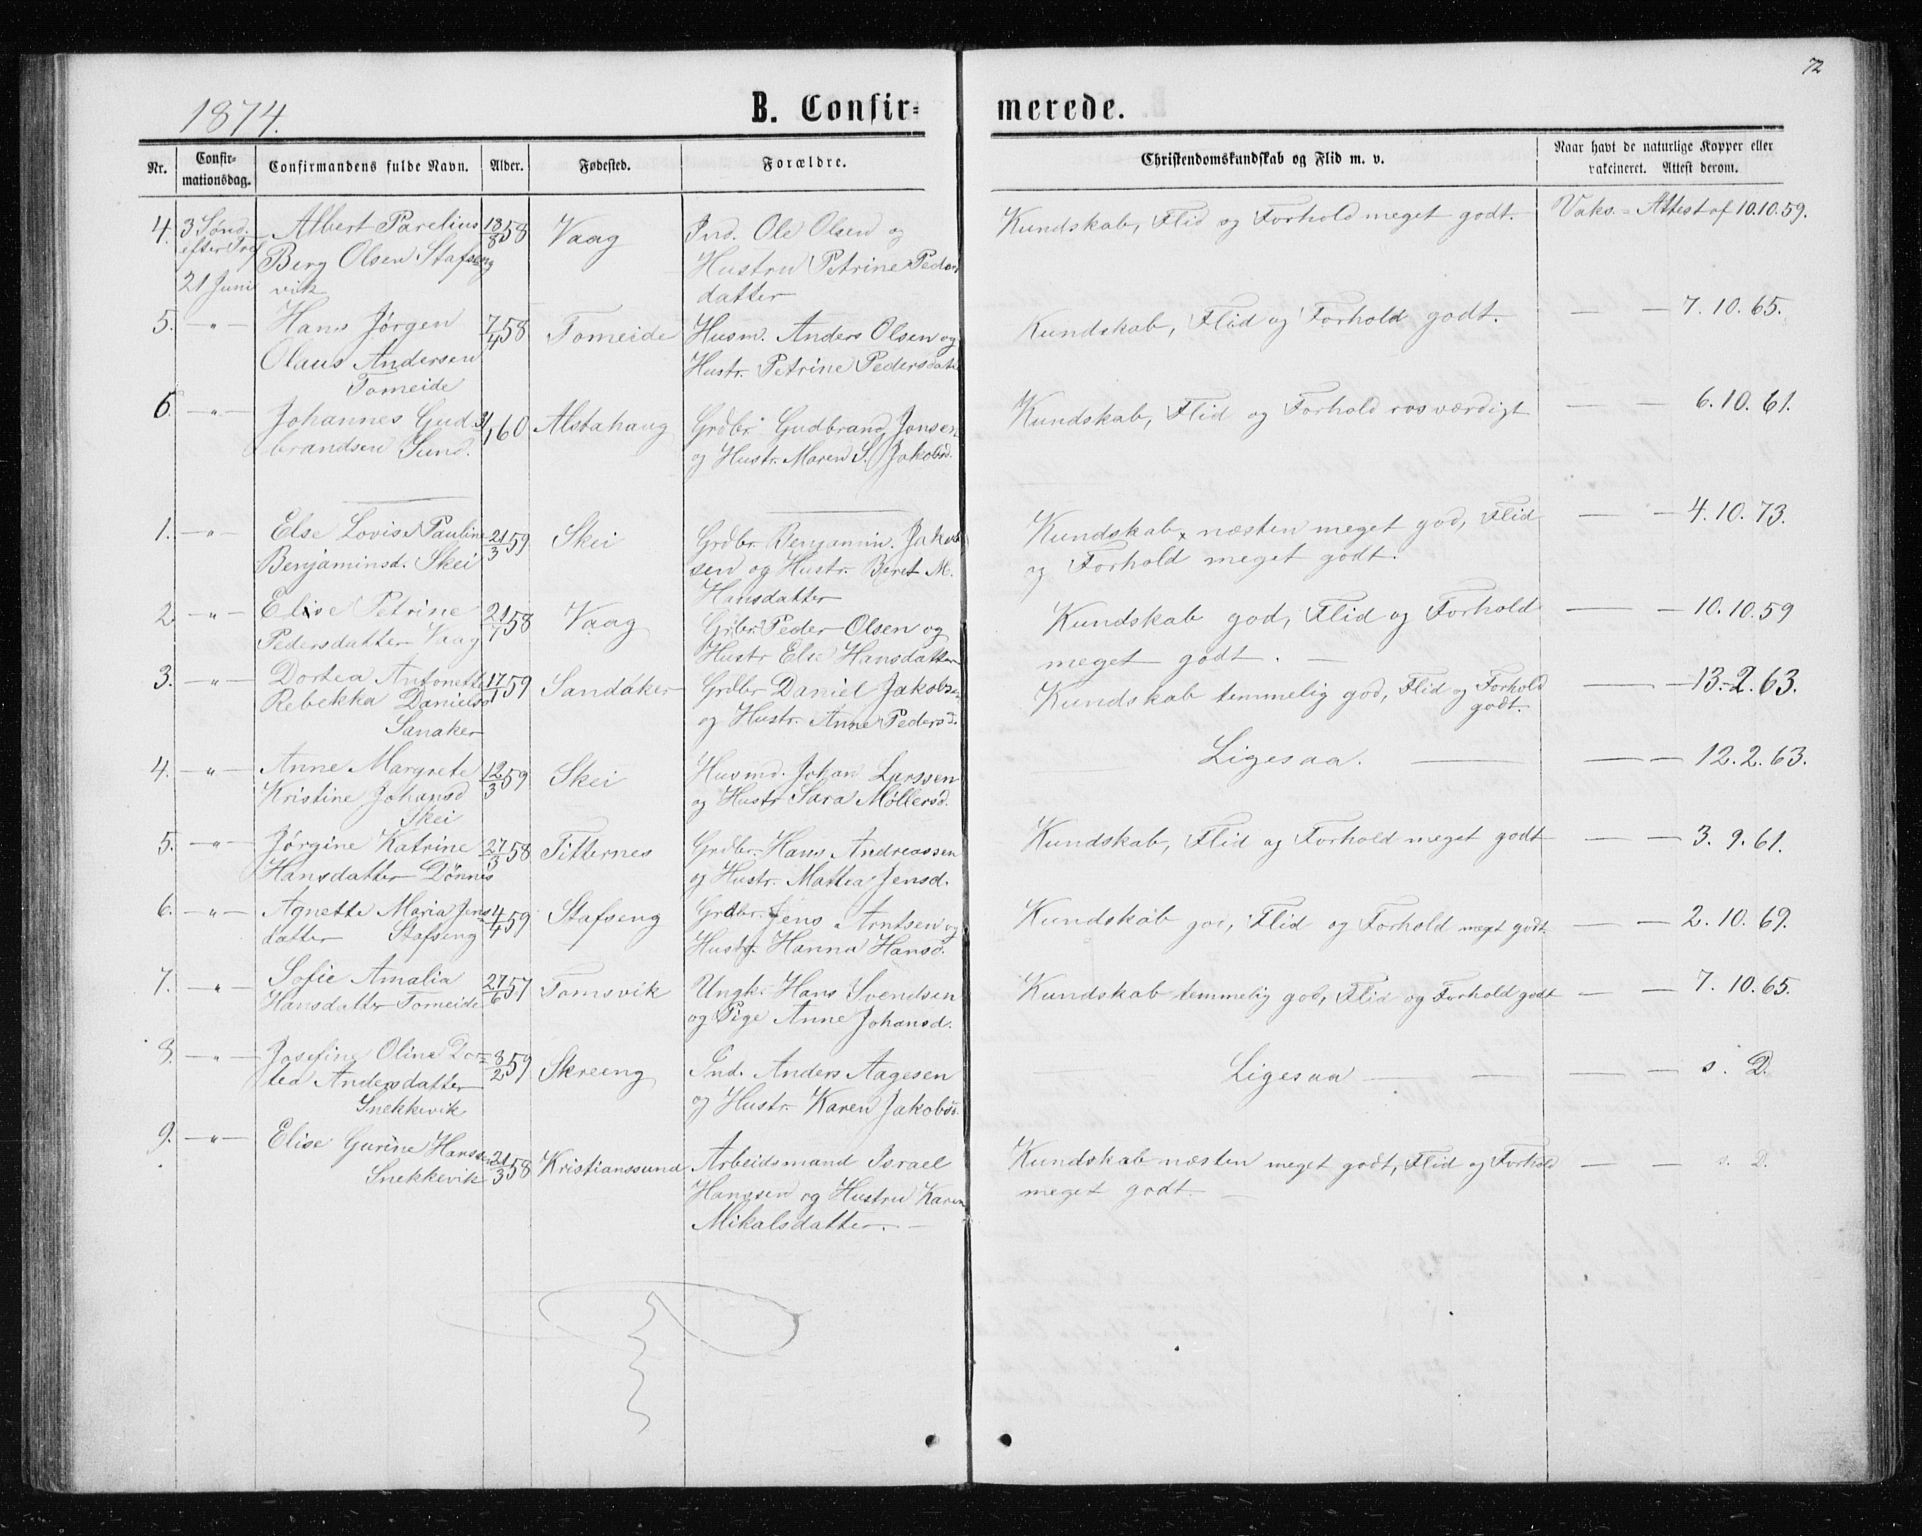 72
1874.
B. Confir=
merede.
Nr.
Confir-
mationsdag.
Confirmandens fulde Navn.
Alder.
Fødested.
Forældre.
Christendomskundskab og Flid m. v.
Naar havt de naturlige Kopper eller
vakcineret. Attest derom.
4. 3 Sønd. Albert Parelius 18/8 58 Vaag Ind. Ole Olsen og Kundskab, Flid og Forhold meget godt. Vaks. = Attest af 10.10.59.
efter Tref Berg Olsen Stafseng Hustru Petrine Peders
21 Juni vik datter
5. -"- Hans Jørgen 7/4 58 Tomeide Husm. Anders Olsen og Kundskab, Flid og Forhold godt. — — 7. 10. 65.
Olaus Andersen Hustr. Petrine Pedersdatr
Tomeide
6. -"- Johannes Gud 3/1 60 Alstahaug Grdbr. Gudbrand Jonsen Kundskab, Flid og Forhold rosværdigt — — 6. 10. 61.
brandsen Sund. og Hustr. Maren S. Jakobsd.
1. -"- Else Lovise Pauline 21/3 59 Skei Grdbr. Benjamin Jakob Kundskab næsten meget god, Flid — — 4. 10. 73.
Benjaminsd. Skei sen og Hustr. Beret M. og Forhold meget godt.
Hansdatter
2 -"- Elise Petrine 21/7 58 Vaag Grbr. Peder Olsen og Kundskab god, Flid og Forhold — — 10. 10. 59
Pedersdatter Vaag Hustr Else Hansdatter meget godt. —
3. -"- Dortea Antonette 17/1 59 Sandaker Grdbr Daniel Jakobsen Kundskab temmelig god, Flid og Forhold — — 13. 2. 63.
Rebekka Danielsd og Hustr. Anne Pedersd. godt.
Sanaker
4. -"- Anne Margrete 12/3 59 Skei Husmd. Johan Larssen Ligesaa. — — — 12. 2. 63.
Kristine Johansd og Hustr Sara Møllersd.
Skei
5. -"- Jørgine Katrine 27/3 58 Titternes Grdbr. Hans Andreassen Kundskab, Flid og Forhold meget godt — — 3. 9. 61.
Hansdatter Dönnes og Hustr. Mattea Jensd.
6. -"- Agnette Maria Jens 4/4 59 Stafseng Grdbr. Jens Arntsen og Kundskab god, Flid og Forhold meget godt. — — 2. 10. 69.
datter Stafseng Hustr. Hanna Hansd.
7. " Sofie Amalia 27/6 57 Tomsvik Ungk. Hans Svendsen Kundskab temmelig god, Flid og Forhold godt — — 7. 10. 65.
Hansdatter Tomeide og Pige Anne Johansd.
8. -"- Josefine Oline Dor= 8/2 59 Skreeng Ind. Anders Aagesen Ligesaa — — — — s. D.
tea Andersdatter og Hustr. Karen Jakobsd.
Snekkevik
9. -"- Elise Gurine Hanssen 21/3 58 Kristianssund Arbeidsmand Israel Kundskab næsten meget godt, Flid og Forhold — — s. D.
Snekkevik Hanssen og Hustru Karen meget godt. —
Mikalsdatter. —